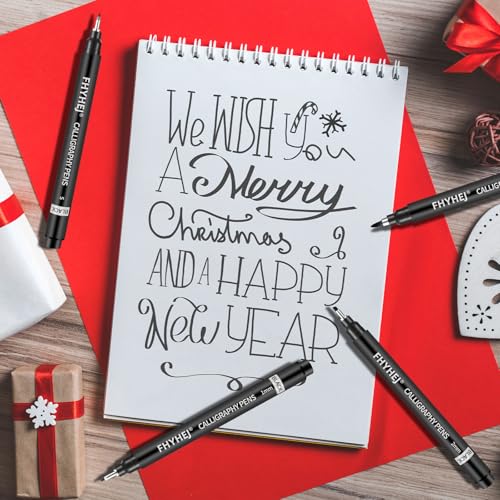 We WISH You
A Merry
Christmas
AND A HAPPY
New YEAR
FHYHEJ CALLIGRAPHY PENS S BLACK
FHYHEJ CALLIGRAPHY PENS
FHYHEJ CALLIGRAPHY PENS 1mm BLACK
FHYHEJ CALLIGRAPHY PENS 2mm BLACK